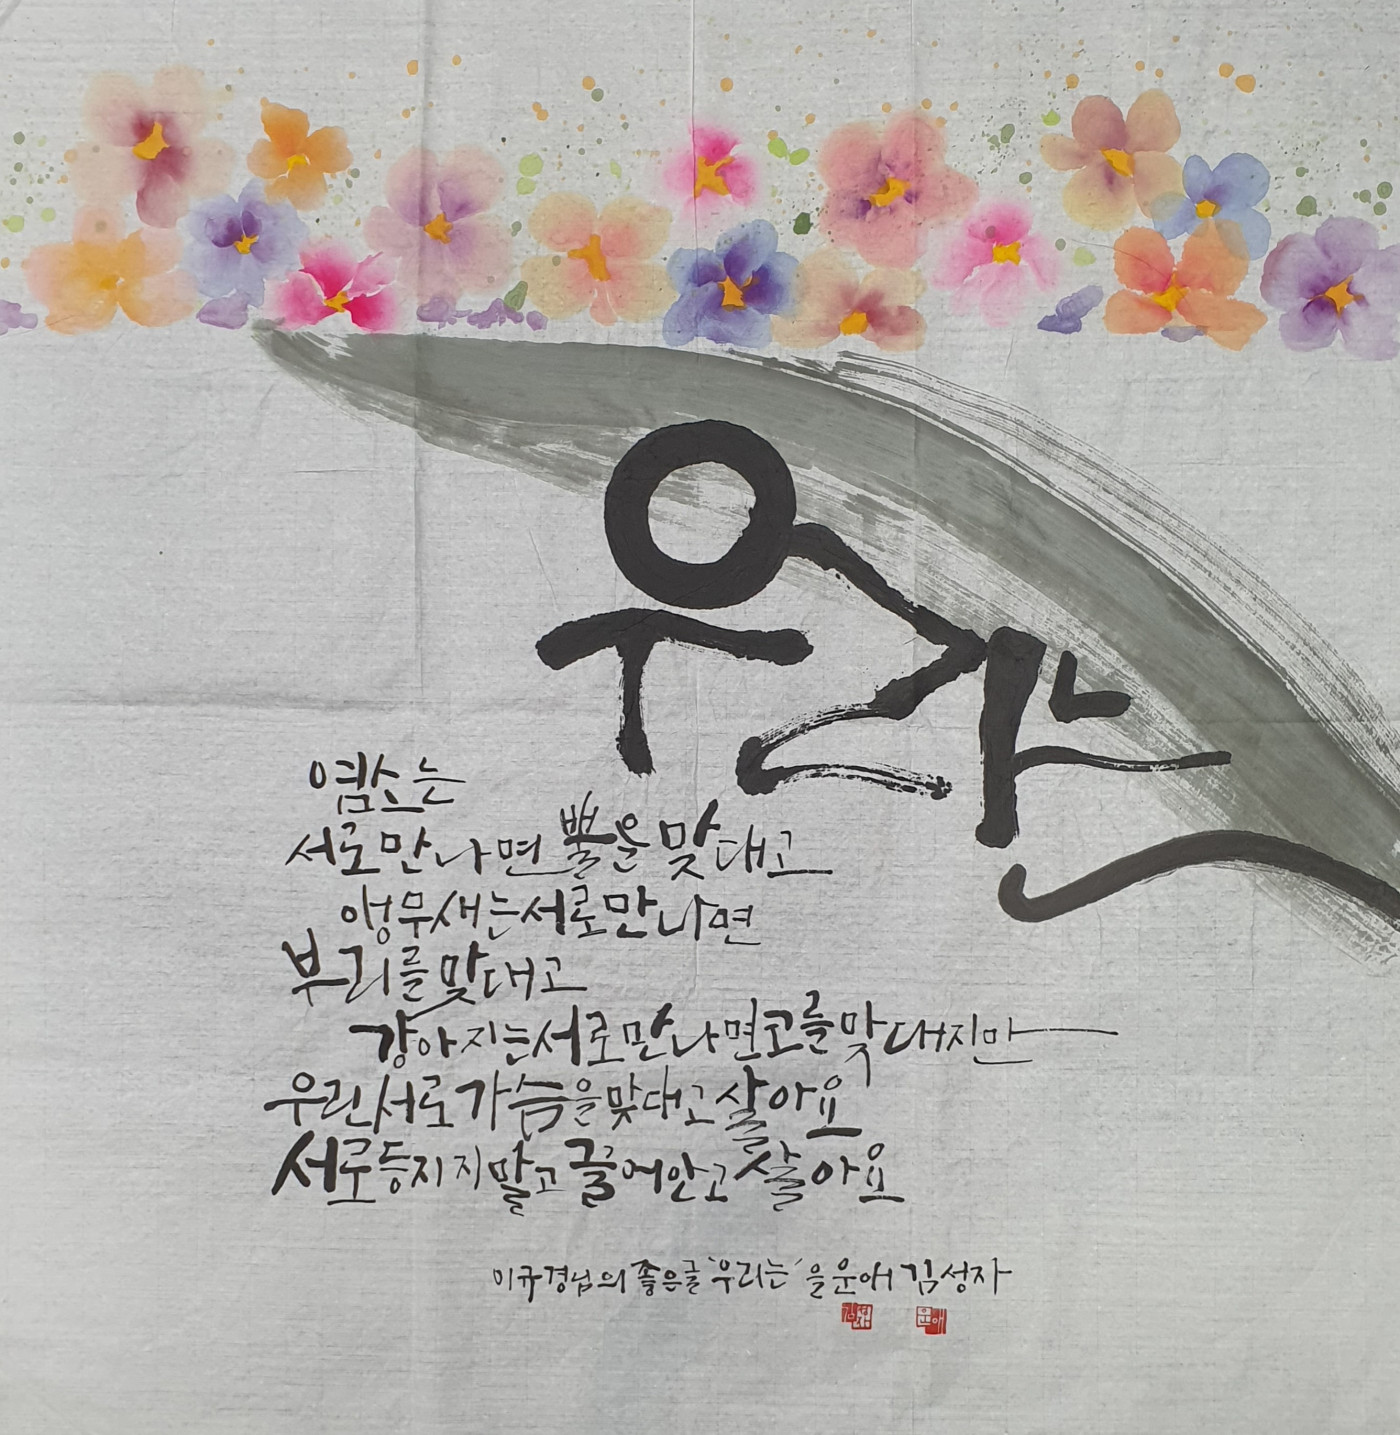 우리는
염소는
서로 만나면 뿔을 맞대고
앵무새는 서로 만나면
부리를 맞대고
강아지는 서로 만나면 코를 맞대지만
우린 서로 가슴을 맞대고 살아요
서로 등지지 말고 끌어안고 살아요
이규경님의 좋은글 '우리는' 을 운애 김성자
운애